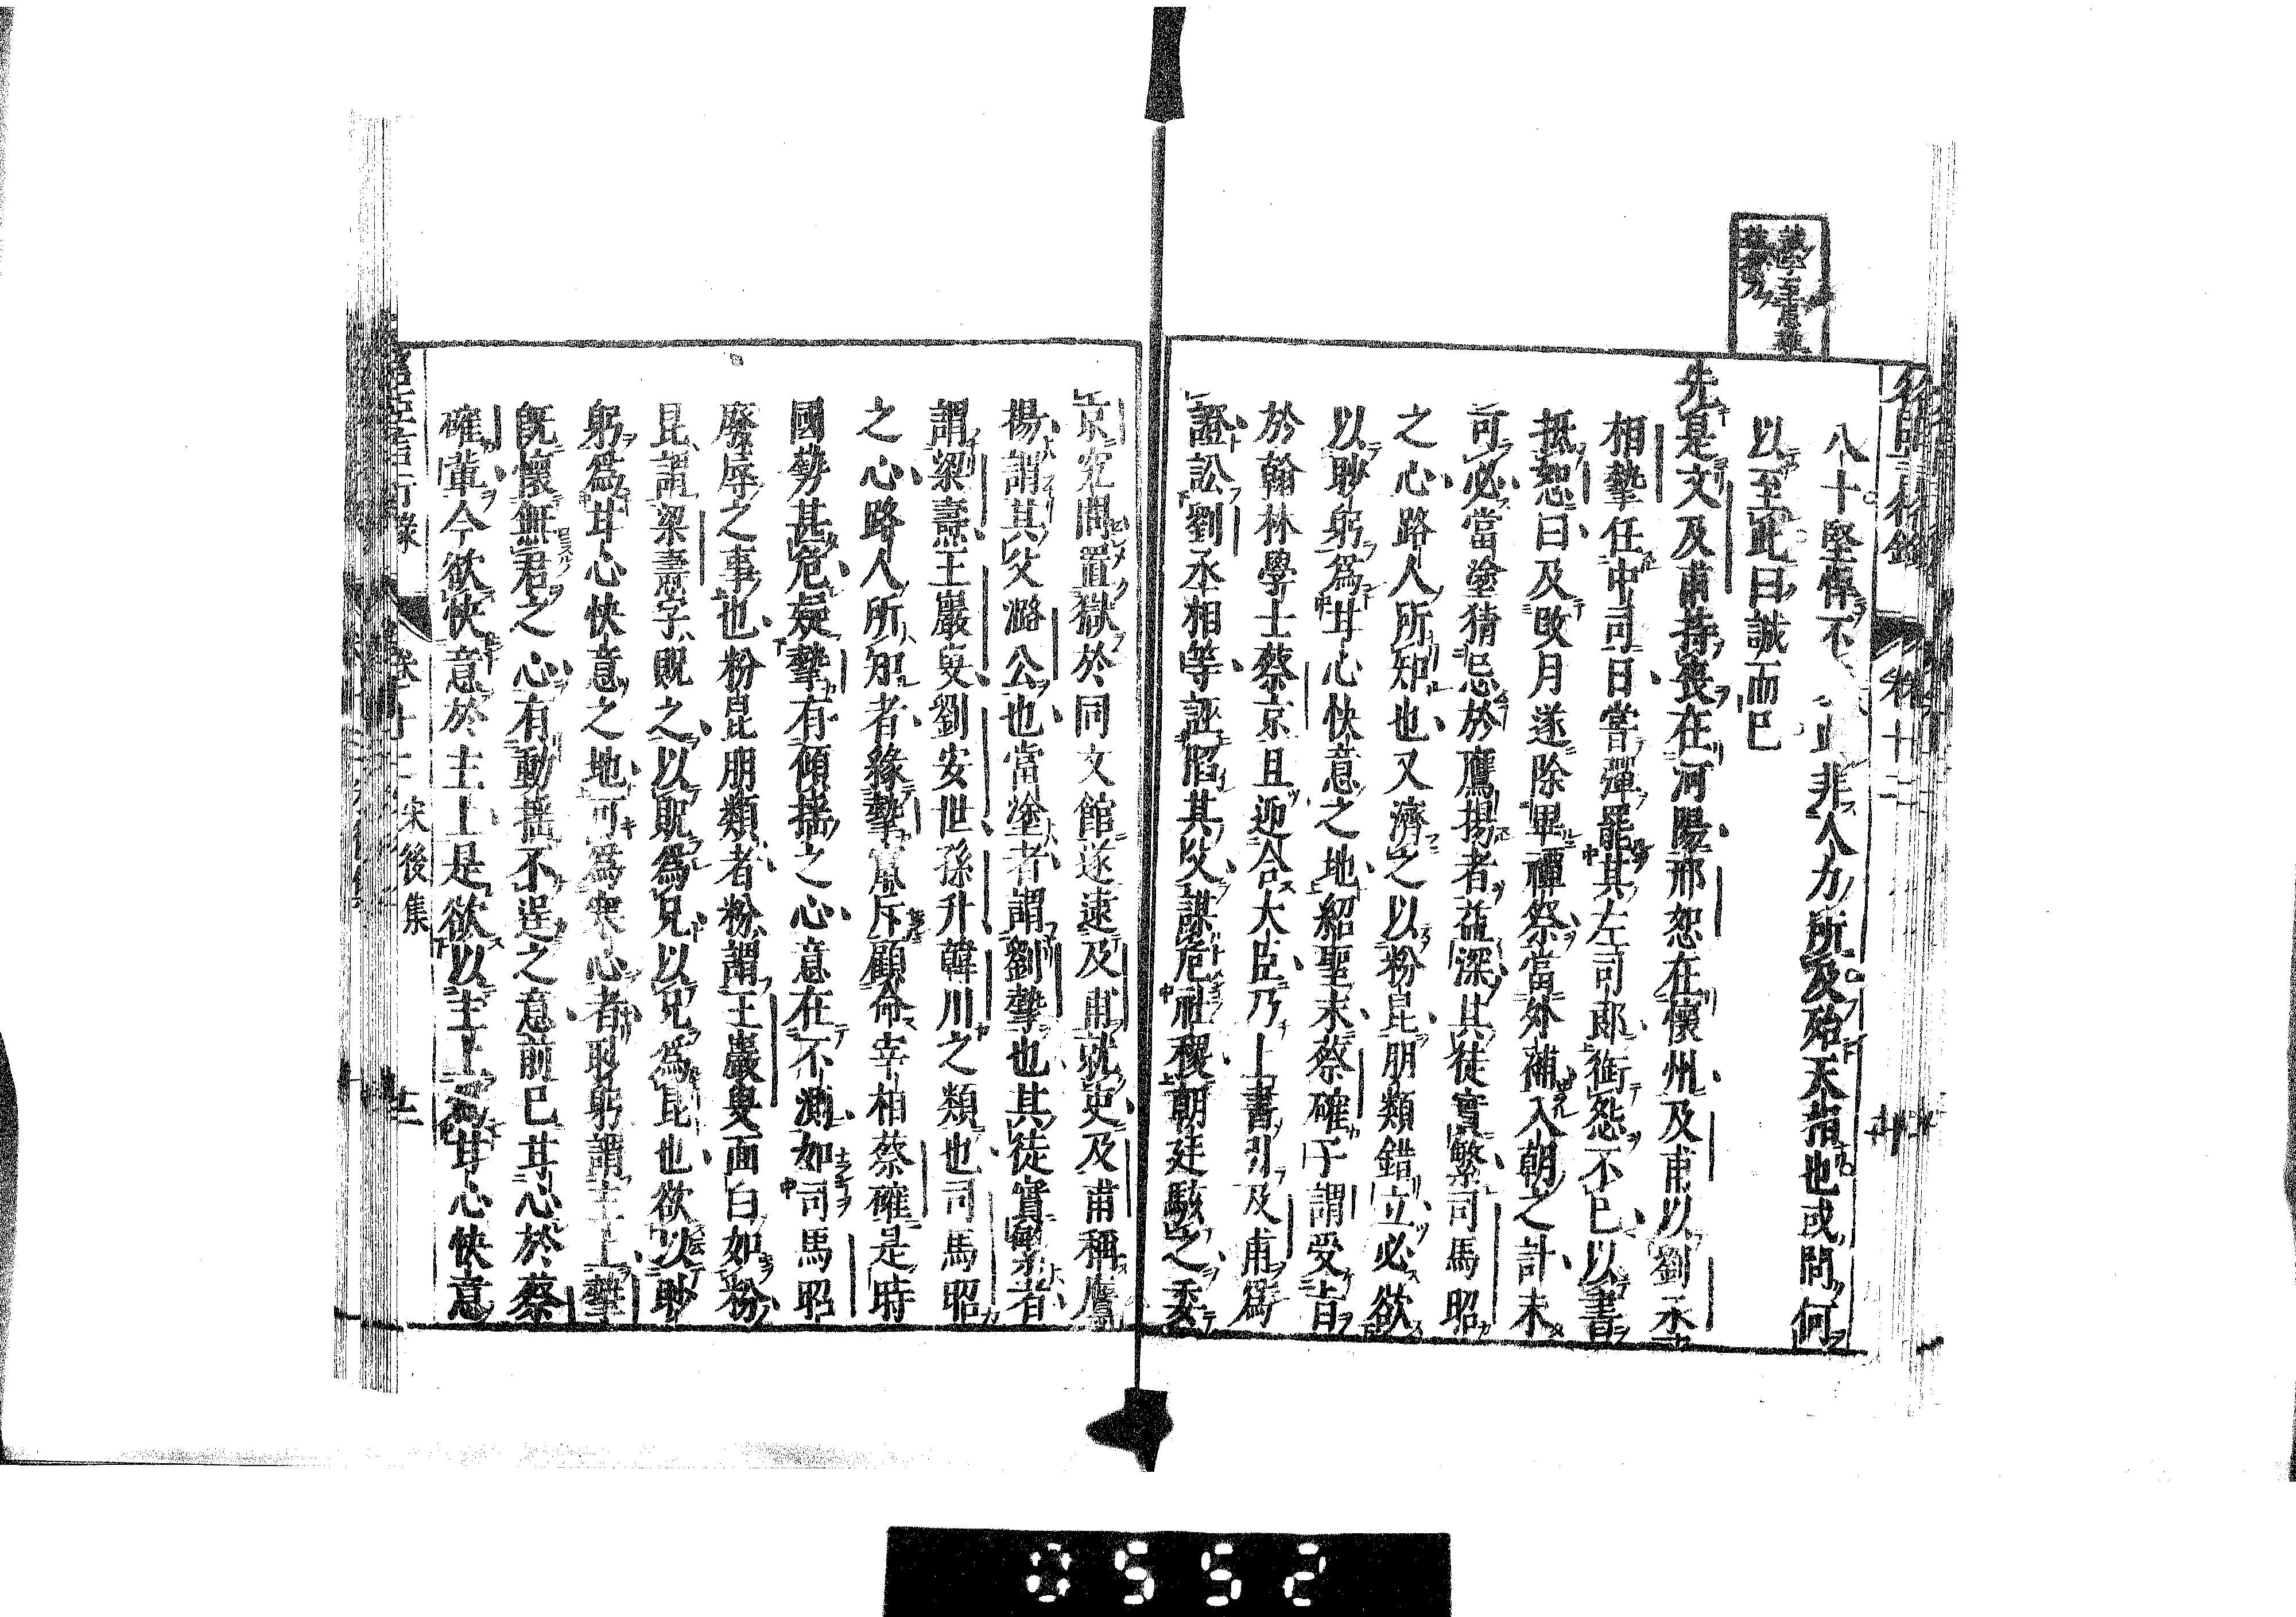 八十堅悍不 此非人力所及殆天相也或問何
以至此曰誠而已
先是文及甫持喪在河陽邢恕在懷州及甫以劉丞
相摯任中司日嘗彈罷其左司郎銜怨不已以書
抵恕曰及改月遂除畢禫祭當外補入朝之計未
可必當塗猜忌於鷹揚者益深其徒實繁司馬昭
之心路人所知也又濟之以粉昆朋類錯立必欲
以眇躬爲甘心快意之地紹聖末蔡確子謂受旨
於翰林學士蔡京且迎合大臣乃上書引及甫爲
證訟劉丞相等誣陷其父謀危社稷朝廷駭之委
京究問置獄於同文館遂逮及甫就吏及甫稱鷹
揚謂其父潞公也當塗者謂劉摯也其徒實繁者
謂梁燾王巖叟劉安世孫升韓川之類也司馬昭
之心路人所知者緣摯 斥顧命宰相蔡確是時
國勢甚危疑摯有傾搖之心意在不測如司馬昭
廢辱之事也粉昆朋類者粉謂王巖叟面白如粉
昆謂梁燾字況之以貺爲兄以兄爲昆也欲以眇
躬爲甘心快意之地可爲寒心者眇躬謂主上摯
旣懷無君之心有動搖不逞之意前已甘心於蔡
確輩今欲快意於主上是欲以主上爲甘心快意
卷十二
宋後集